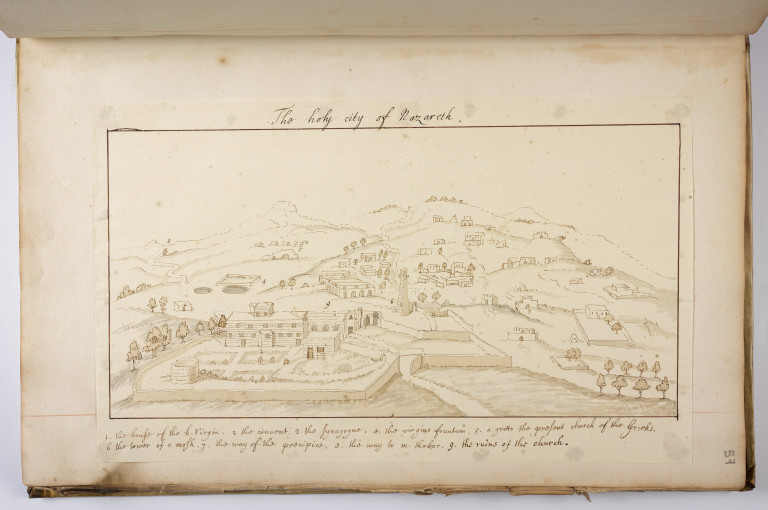 The holy city of Nazareth.
1. the house of the b. Virgin. 2 the convent. 3 the Synagogue. 4. the virgins fountain. 5. a grotto the present church of the Greeks.
6 the tower of a mosk. 7. the way of the precipice. 8. the way to m. thabor. 9. the ruins of the church.
54